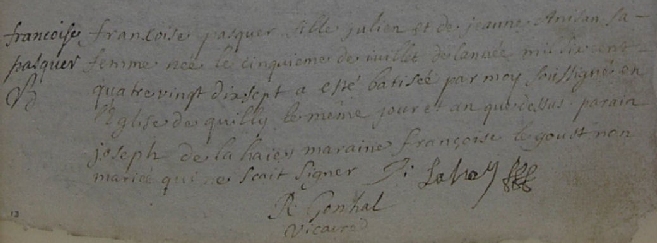 francoise
pasquer
françoise pasquer fille julien et de jeanne Anisan sa
femme née le cinquieme de iuillet de lanneé mil six cent
quatre vingt dix sept a esté batiseé par moy soussigné en
l'Eglise de quilly le même jour et an que dessus parain
joseph de la haiey maraine françoise le goust non
marieé qui ne scait signer J: Lahay
R Gonhal
vicaire